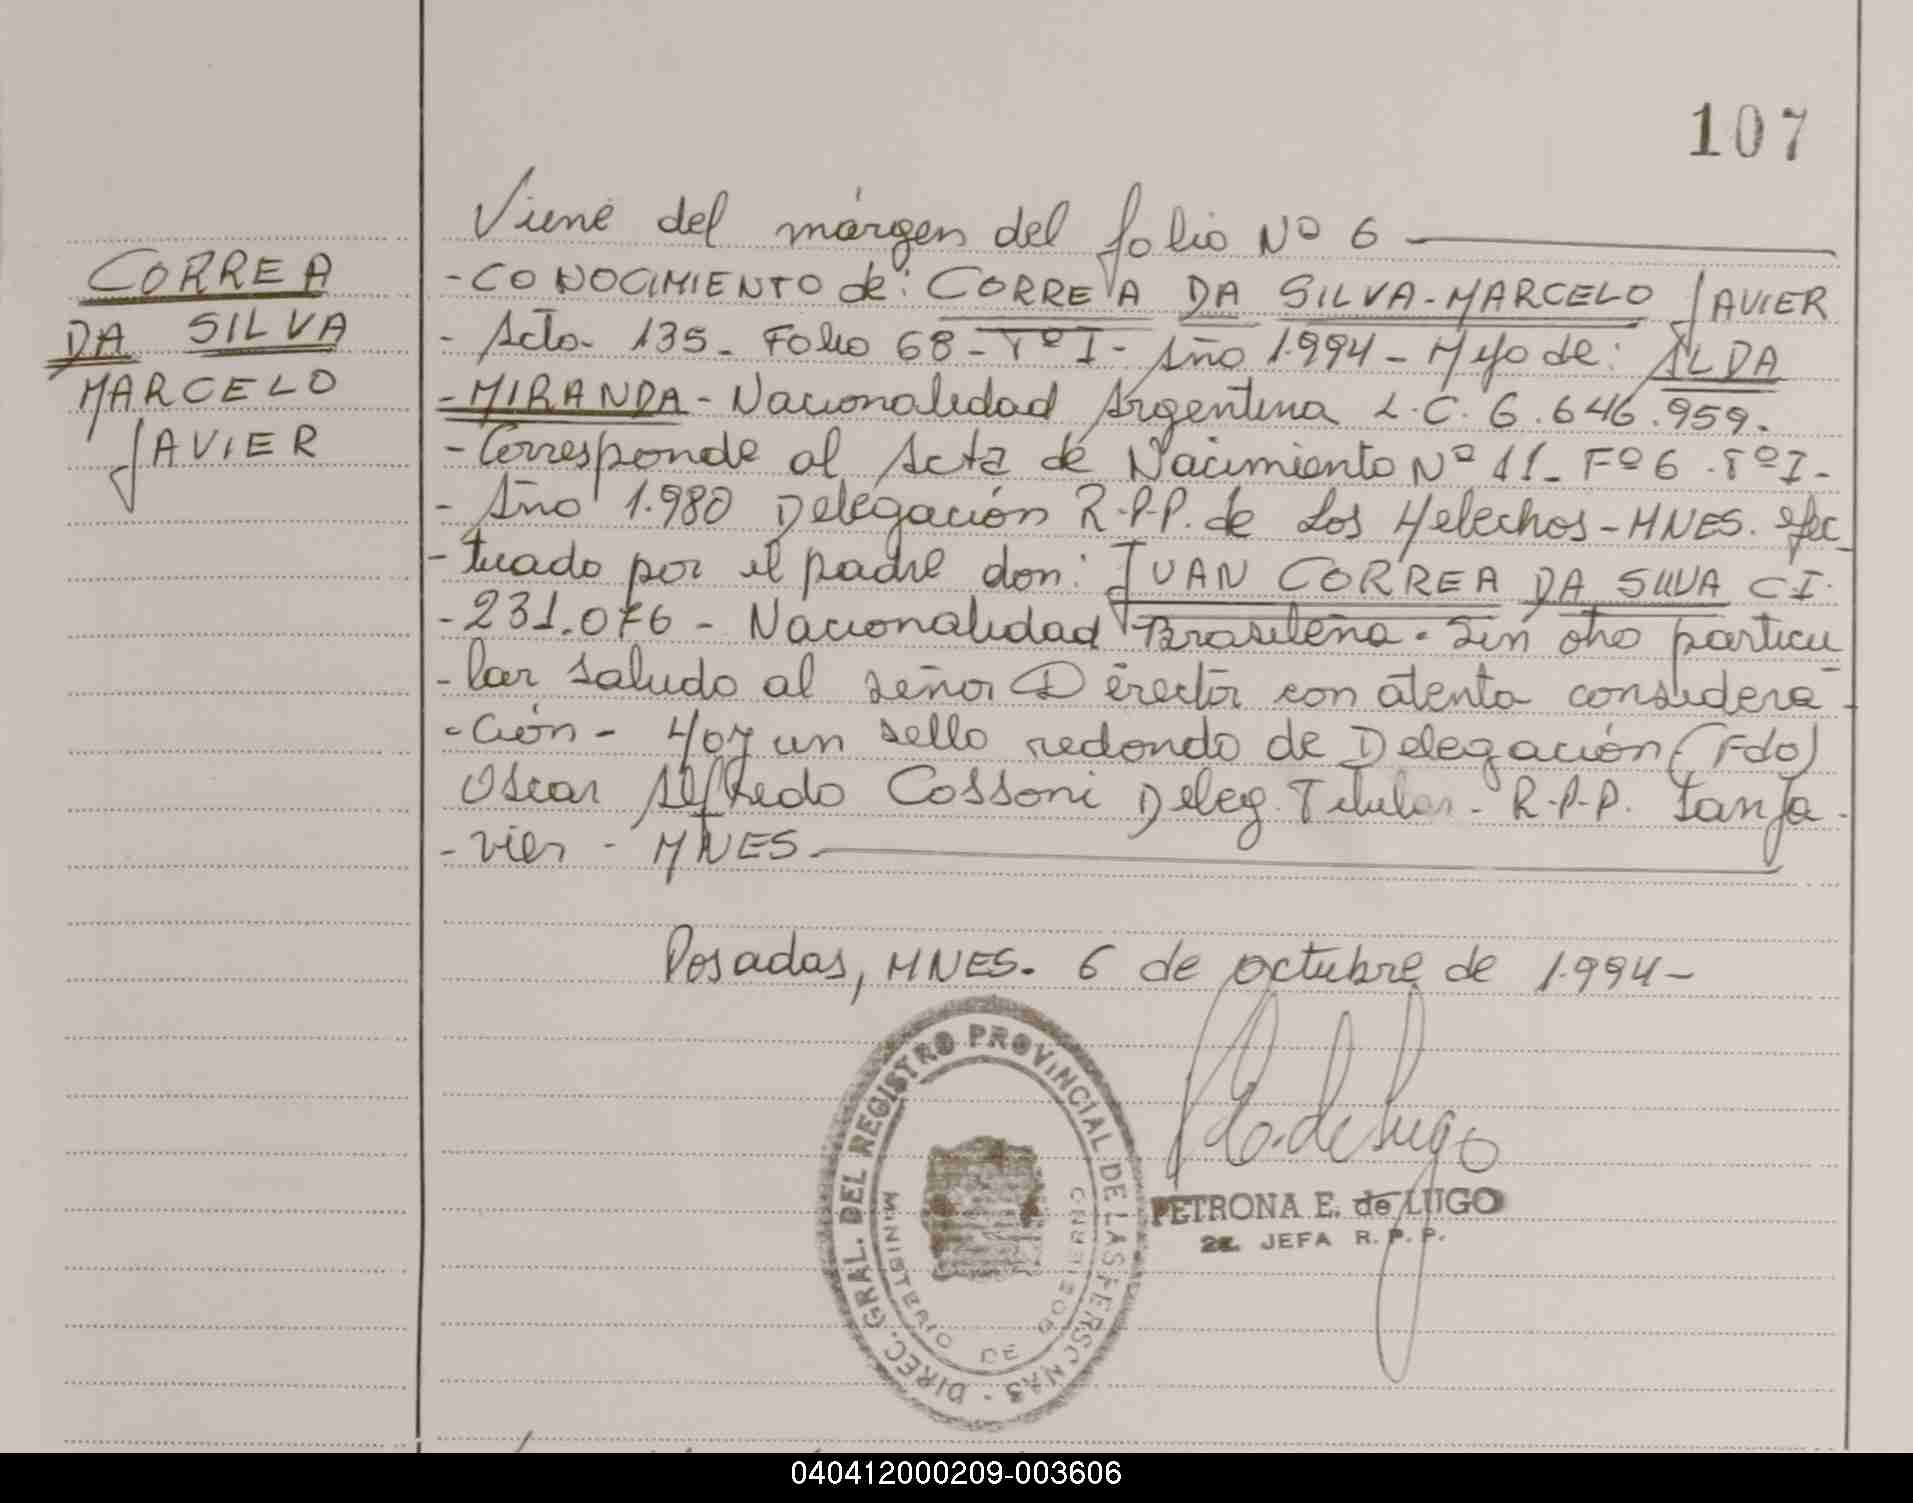 107
Viene del márgen del folio Nº 6
CORREA
DA SILVA
MARCELO
JAVIER
-CONOCIMIENTO de: CORREA DA SILVA-MARCELO JAVIER
- Acta- 135- Folio 68-TºI- Año 1.994- Hijo de: ALDA
-MIRANDA- Nacionalidad Argentina L.C. 6.646.959.
-Corresponde al Acta de Nacimiento Nº 11- Fº6-TºI-
- Año 1.980 Delegación R-P-P. de Los Helechos-MNES. efec
-tuado por el padre don: JUAN CORREA DA SILVA CI.
-231.076- Nacionalidad Brasileña. Sin otro particu
-lar saludo al señor Director con atenta considera-
-ción- Hay un sello redondo de Delegación (Fdo)
Oscar Alfredo Cossoni Deleg. Titular- R-P-P. San Ja-
-vier- MNES.
Posadas, MNES. 6 de octubre de 1.994-
DIREC. GRAL. DEL REGISTRO PROVINCIAL DE LAS PERSONAS
MINISTERIO DE GOBIERNO
de Lugo
PETRONA E. de LUGO
JEFA R. P. P.
040412000209-003606